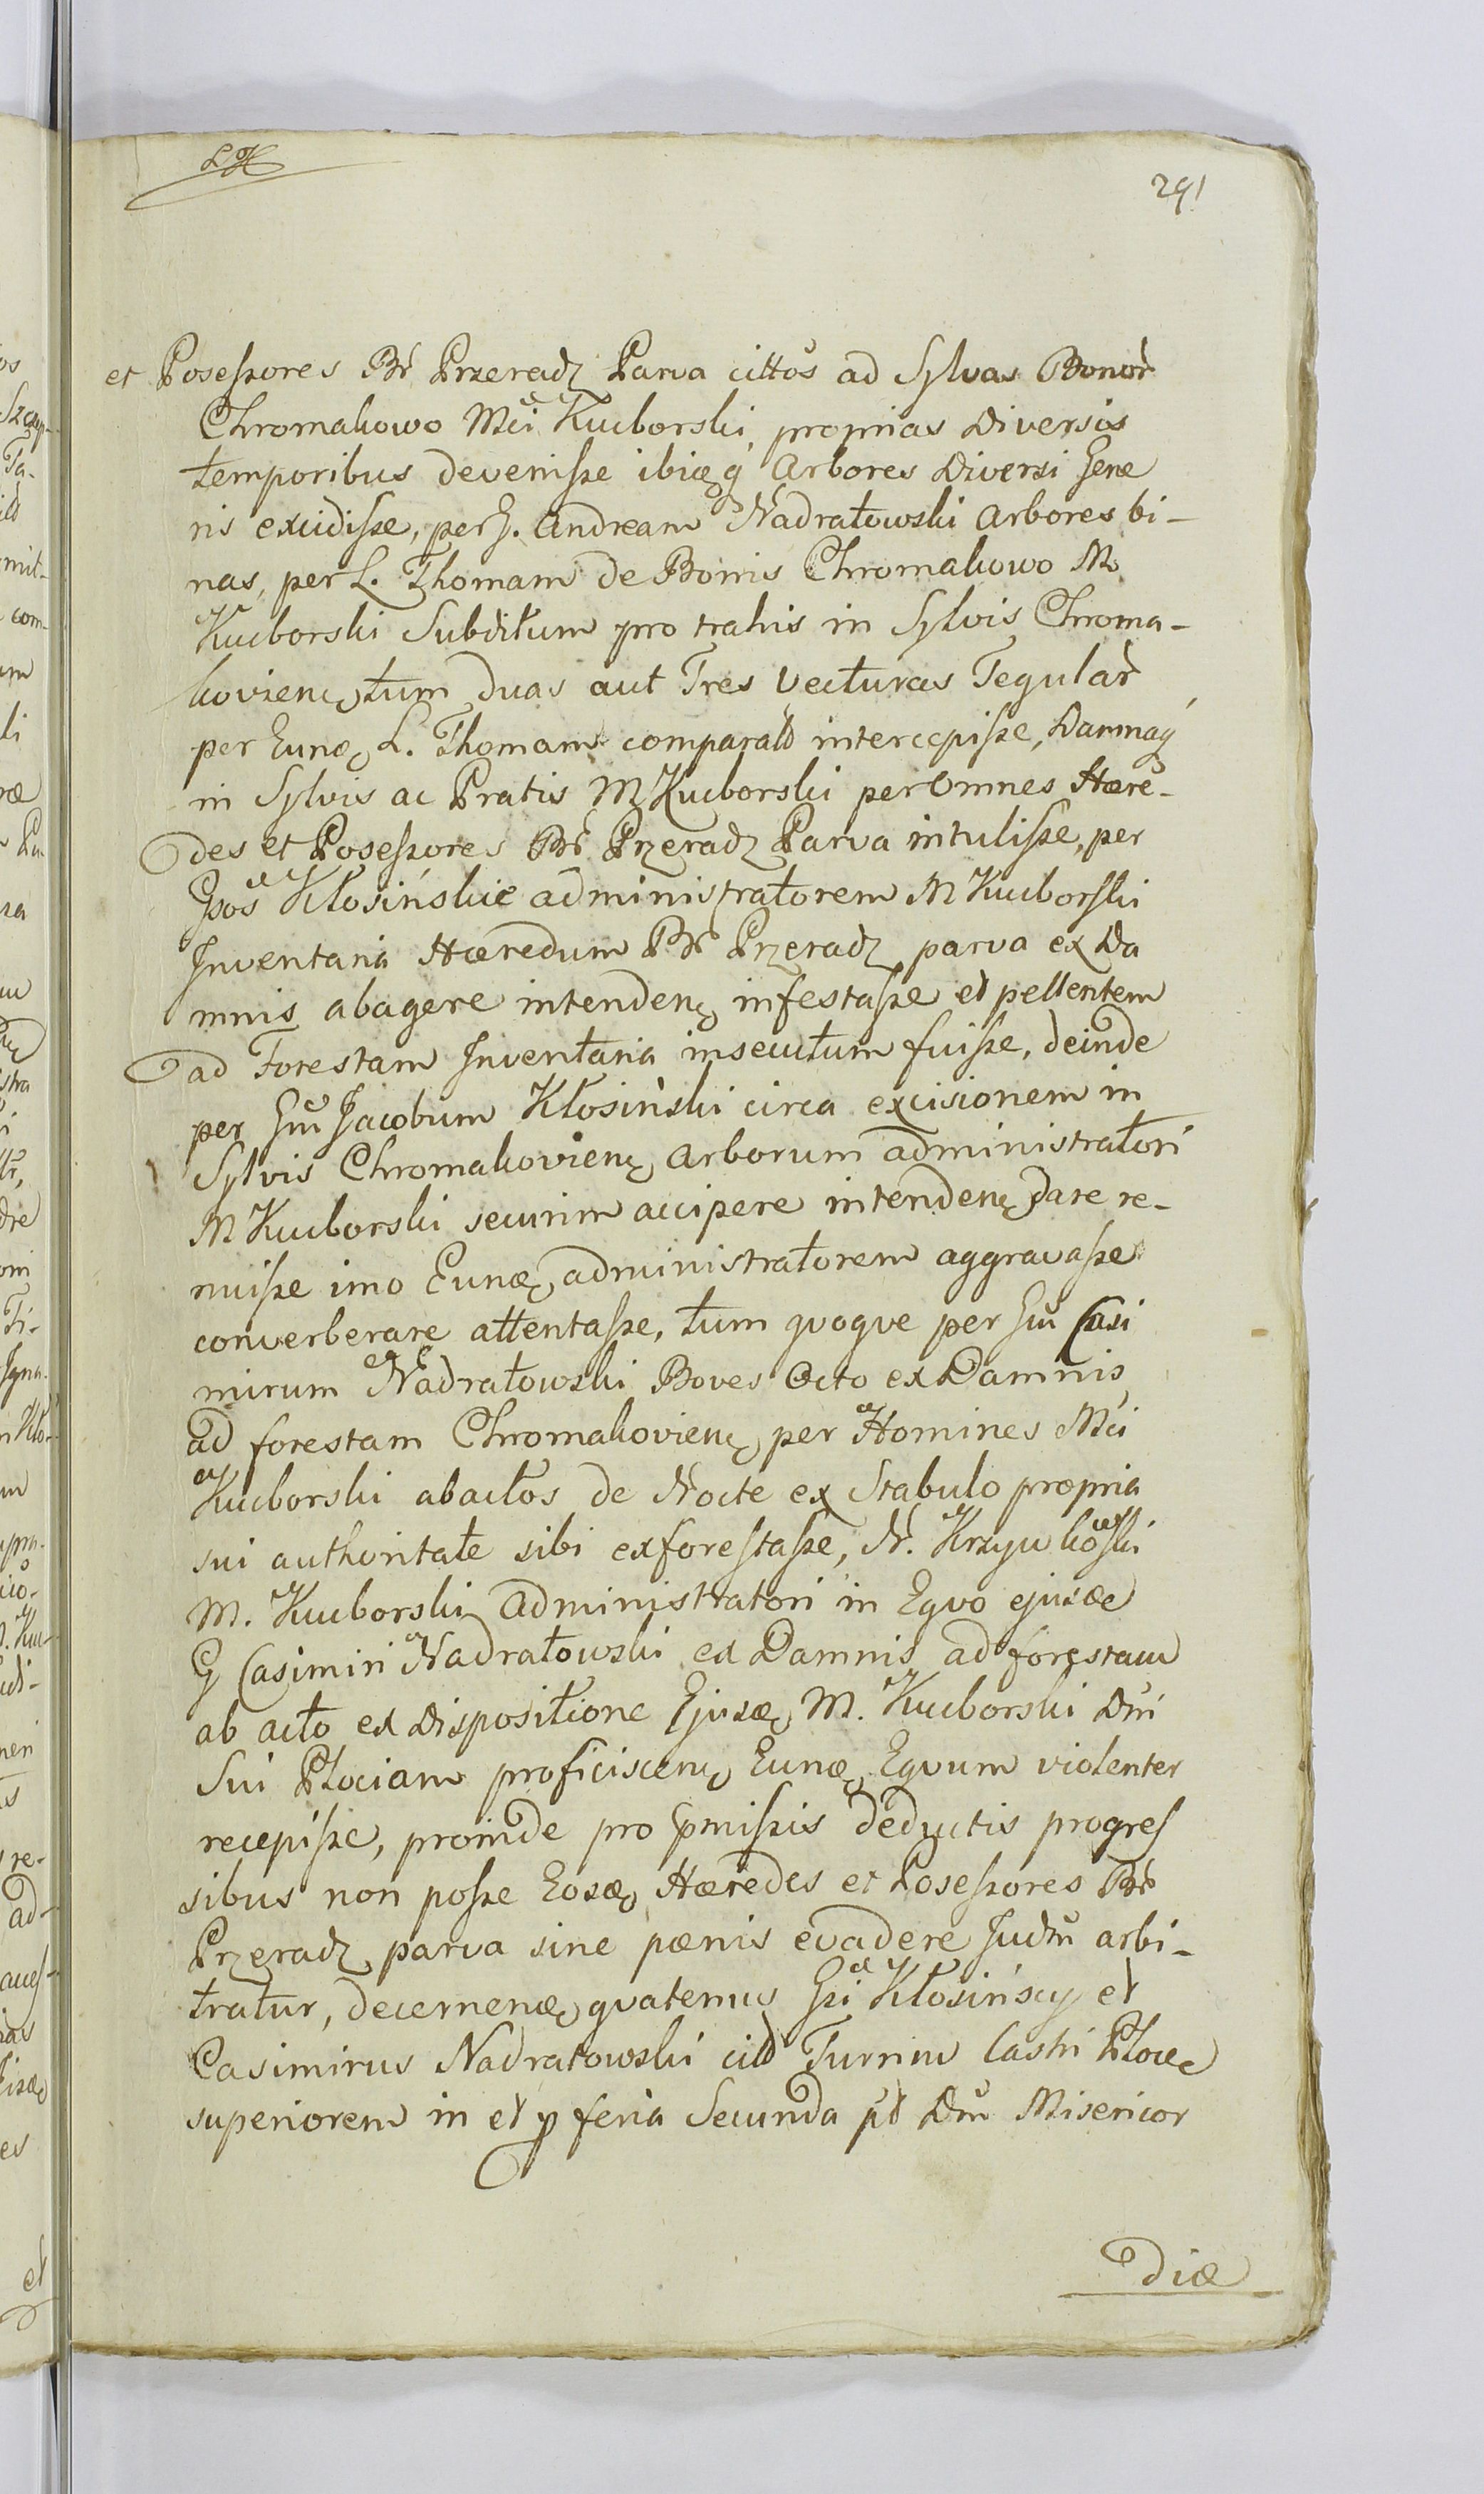 291
et Poseszores Br̃ Przeradz Parva cittos ad Sylvas Bonor̃
Chromakowo Mci Kucborski, proprias Diversis
temporibus devenisze ibiq̨ Arbores Diversi Gene
ris excidisze, per G. Andream Nadratowski Arbores bi-
nas, per L. Thomam de Bonis Chromakowo M
Kucborski Subditum pro trahis in Sylvis Chroma-
kovienę, tum duas aut Tres Vecturas Tegular̃
per Eunæ, L. Thomam comparatd intercepisze, Damnaq̨
in Sylvis ac Pratis M Kucborski per Omnes Hære-
des et Poseszores Br̃ Przeradz Parva intulisze, per
Gsos Kłosińskie administratorem M Kucborski
Inventaria Hæredum Br̃ Przeradz parva ex Da
mnis abagere intendenę infestasze et pellentem
ad Forestam Inventaria insecutum fuisze, deinde
per Gm̃ Jacobum Kłosiński circa excisionem in
Sylvis Chromakovienę Arborum administratori
M Kucborski securim accipere intendenę dare re-
nuisze imo Eunæ, administratorem aggravasze
converberare attentasze, tum qvoqve per Gm̃ Casi
mirum Nadratowski Boves Octo ex Damnis
ad forestam Chromakovienę per Homines Mci
Kucborski abactos de Nocte ex Stabulo propria
sui authoritate sibi exforestasze, N. Krzywkowski
M. Kucborski Administratori in Eqvo ejusæ
G Casimiri Nadratowski ex Damnis ad forestam
ab acto ex Dispositione Ejusæ, M. Kucborski Dni
Sui Plociam proficiscenę Eunæ, Eqvum violenter
recepisze, proinde pro p̃miszis deductis progres
sibus non posze Eosæ, Hæredes et Poseszores Br̃
Przeradz parva sine pænis evadere Judm̃ arbi-
tratur, decernenæ, qvatenus Gsi Kłosińscy et
Casimirus Nadratowski citd Turrim Castri Plocę
superiorem in et p feria Secunda pt̃ Dm̃ Misericor
diæ